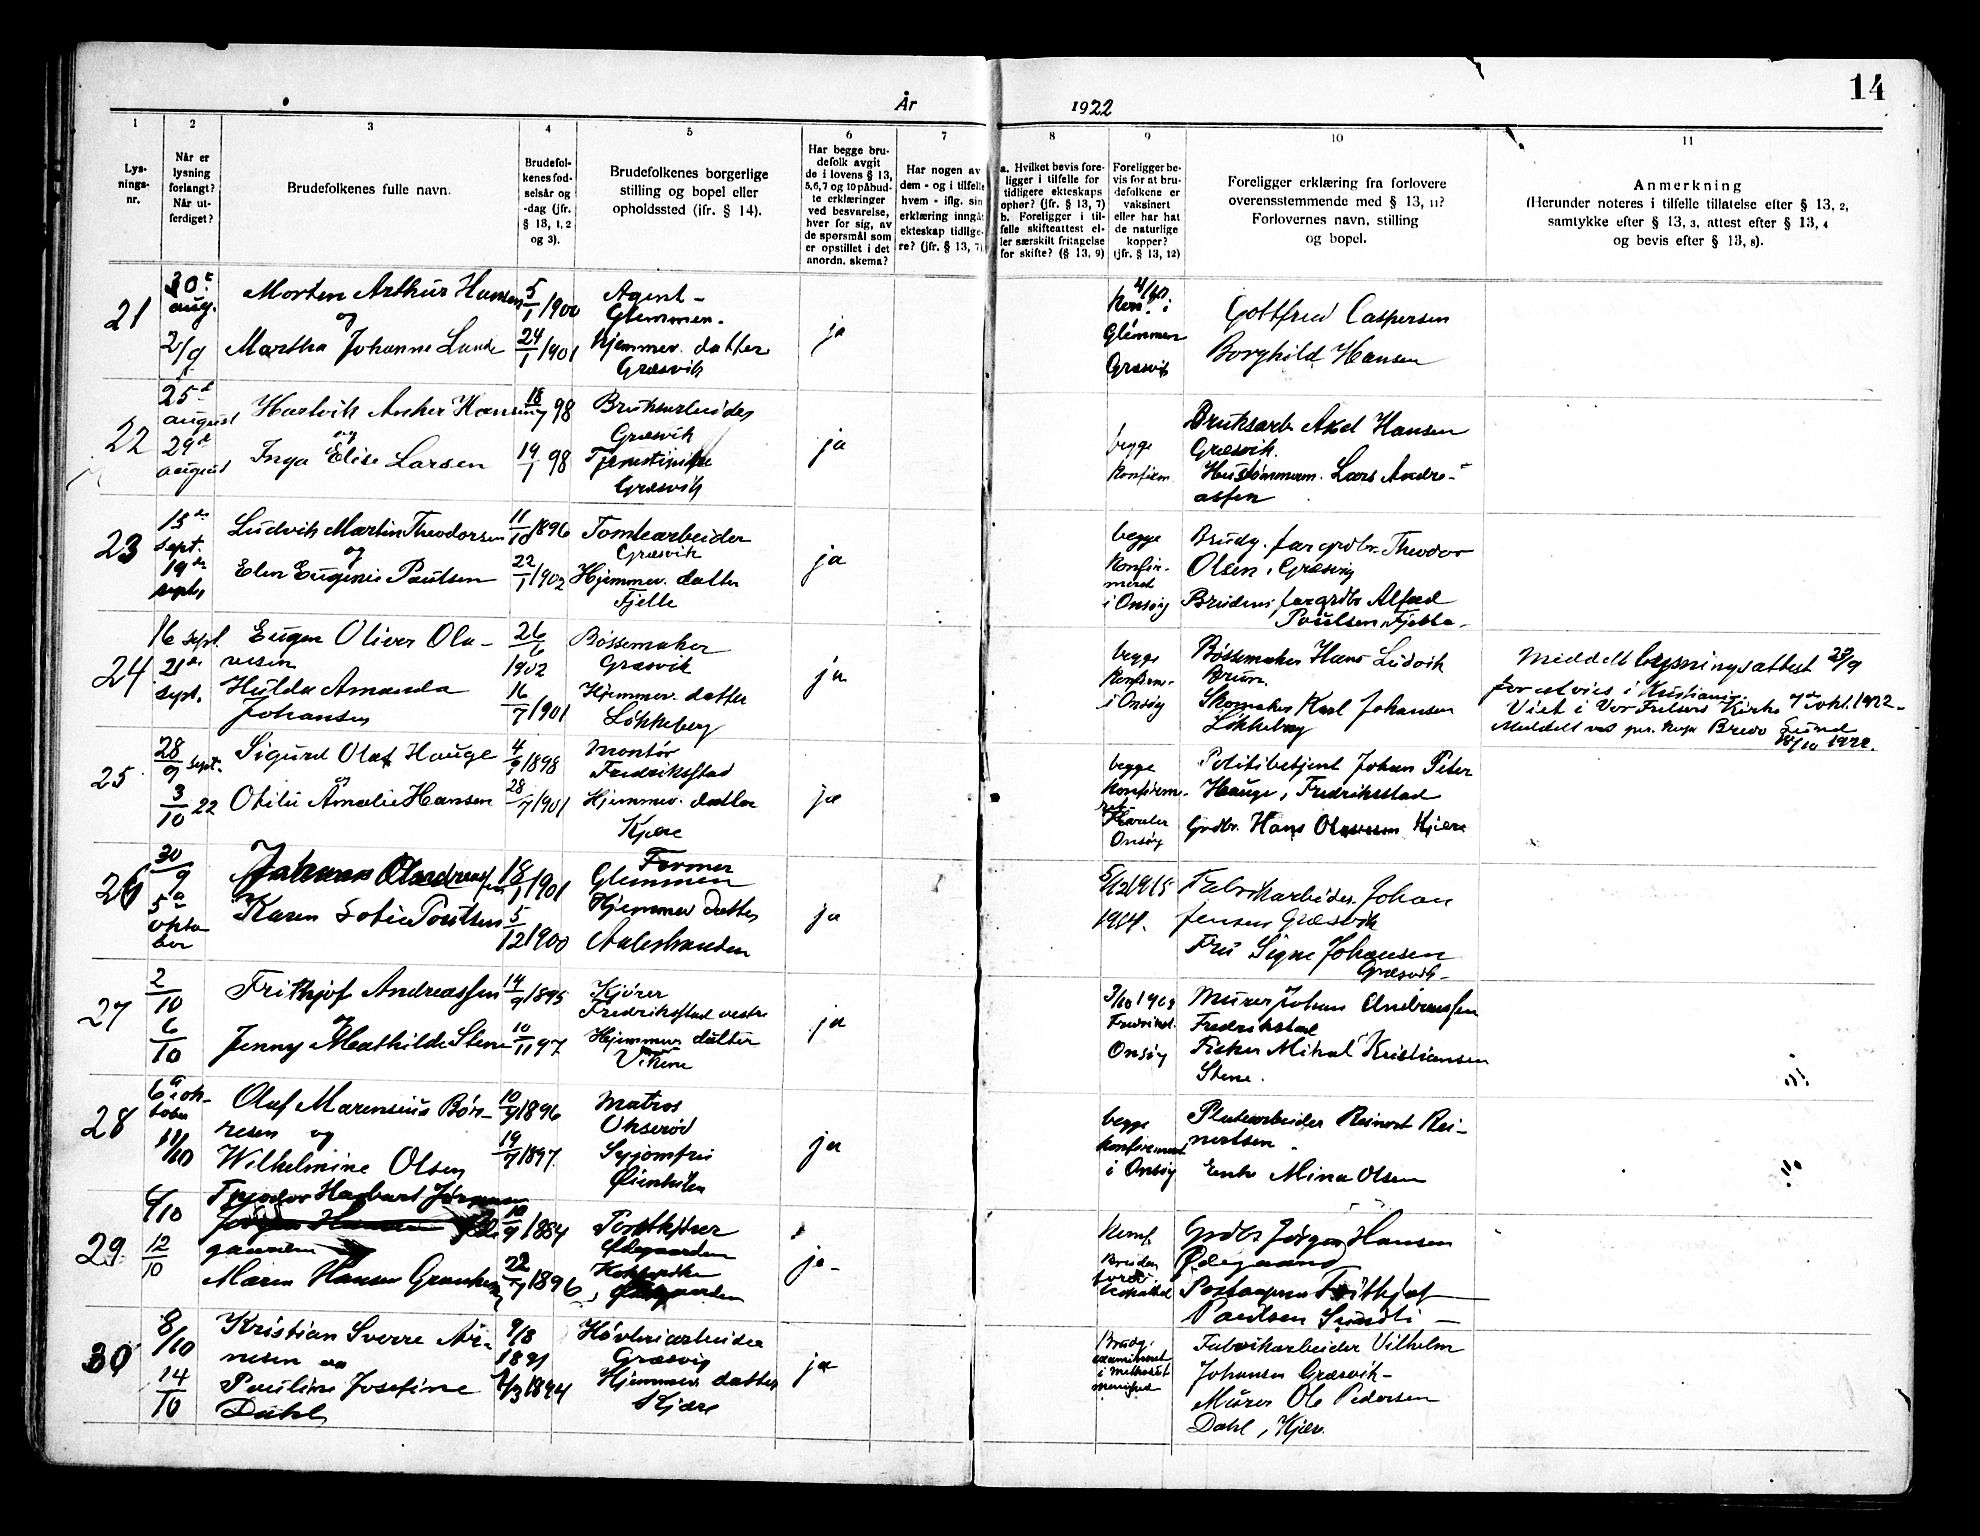 14
År 1922
1 2 3 4 5 6 7 8 9 10 11
Lys-
nings-
nr.
Når er
lysning
forlangt?
Når ut-
ferdiget?
Brudefolkenes fulle navn.
Brudefol-
kenes fød-
selsår og
-dag (jfr.
§ 13, 1, 2
og 3).
Brudefolkenes borgerlige
stilling og bopel eller
opholdssted (ifr. § 14).
Har begge bru-
defolk avgit
de i lovens § 13,
5,6,7 og 10 påbud-
te erklæringer
ved besvarelse,
hver for sig, av
de spørsmål som
er opstillet i det
anordn. skema?
Har nogen av
dem - og i tilfelle
hvem - iflg. sin
erklæring inngåt
ekteskap tidlige-
re? (jfr. § 13, 7)
a. Hvilket bevis fore-
ligger i tilfelle for
tidligere ekteskaps
ophør? (jfr. § 13, 7)
b. Foreligger i til-
felle skifteattest el-
ler særskilt fritagelse
for skifte? (§ 13, 9)
Foreligger be-
vis for at bru-
defolkene er
vaksinert
eller har hat
de naturlige
kopper?
(jfr. § 13, 12)
Foreligger erklæring fra forlovere
overensstemmende med § 13, 11?
Forlovernes navn, stilling
og bopel.
Anmerkning
(Herunder noteres i tilfelle tillatelse efter § 13, 2,
samtykke efter § 13, 3, attest efter § 13, 4
og bevis efter § 13, 8).
21
30t
aug.
2/9
Morten Arthur Hansen
og
Martha Johanne Lunde
5/1 1900
24/1 1901
Agent -
Glemmen.
Hjemmev. datter
Græsvik
ja
Glemmen
Græsvik
Gottfred Caspersen
Borghild Hansen
22
25d
august
29d
august
Hartvik Anker Hansen
og
Inga Elise Larsen
18/7 98
19/1 98
Bruksarbeider
Græsvik
Græsvik
ja
begge
konfirm.
Bruksarb Axel Hansen
Græsvik.
Hustømmerm. Lars Andre-
assen
23
15de
sept.
19de
septb
Ludvik Martin Theodorsen
og
Elen Eugenie Paulsen
11/10 1896
22/1 1902
Tomtearbeider
Græsvik
Hjemmev. datter
Fjelle
ja
begge
konfir-
meret
i Onsøy
Brudg. far grdbr. Theodor
Olsen, Græsvig
Brudens far grdbr Alfred
Poulsen, Fjelle.
24
16 sept.
21de
sept.
Eugen Oliver Ola-
vesen
Hulda Amanda
Johansen
26/6
1902
16/7 1901
Bøssemaker
Græsvik
Hjemmev. datter
Løkkeberg
ja
begge
konfirm.
i Onsøy
Bøssemaker Hans Ludvik
Brun.
Skomaker Karl Johansen
Løkkeberg
Meddelt lysningsattest 23/9
for at vies i Kristiania.
Viet i Vor Frelsers Kirke 7de okt. 1922.
Meddelt ved per. kap Bredo Lund
1922.
25
28/9 sept.
3/10 22
Sigurd Olaf Hauge
og
Otilie Amalie Hansen
4/9 1898
28/7 1901
Montør
Fredriksstad
Hjemmev. datter
Kjære
ja
begge
konfirme-
ret
Onsøy
Politibetjent Johan Peter
Hauge, Fredriksstad
Grdbr. Hans Olavesen Kjære
26
30/9
5te
okto
ber
Johannes
Karen Sofie Poulsen
18/1 1901
5/12 1900
Former
Glemmen
Hjemmev datter
ja
5/12 1915
1914.
Fabrikarbeider Johan
Jensen Græsvik
Fru Signe Johansen
Græsvik
27
2/10
6/10
Frithjof Andreassen
Jenny Mathilde Stene
14/9 1895
10/11 97
Kjører
Fredriksstad vestre
Hjemmev datter
Vikene
ja
Fredrikst.
Onsøy
Murer Johan Andreassen
Fredrikstad
Fisker Mikal Kristiansen
Stene.
28
6te ok-
tober
11/10
Olaf Marensius Bør-
resen og
Wilhelmine Olsen
10/9 1896
19/7 1897
Matros
Okserød
Syjomfru
ja
begge
konfirmert
i Onsøy
Platearbeider Reinert Rei-
nertsen
Enke Mina Olsen
29
6/10
12/10
Thjodor Harbart Jørgensen
Maren Hansen
10/9 1884
22/7 1896
Postkjører
Ødegaarden
ja-
Konf.
Grdbr Jørgen Hansen
Ødegaard
Postaapner Frithjof
Paulsen
30
8/10
14/10
Kristian Sverre Ar-
nesen og
Pauline Josefine
Dahl
9/8
1891
1/3 1894
Høvleriarbeider
Græsvig
Hjemmev. datter
Kjære
ja
Brudg.
i
Fabrikarbeider Vilhelm
Johansen Græsvik-
Murer Ole Pedersen
Dahl, Kjær.